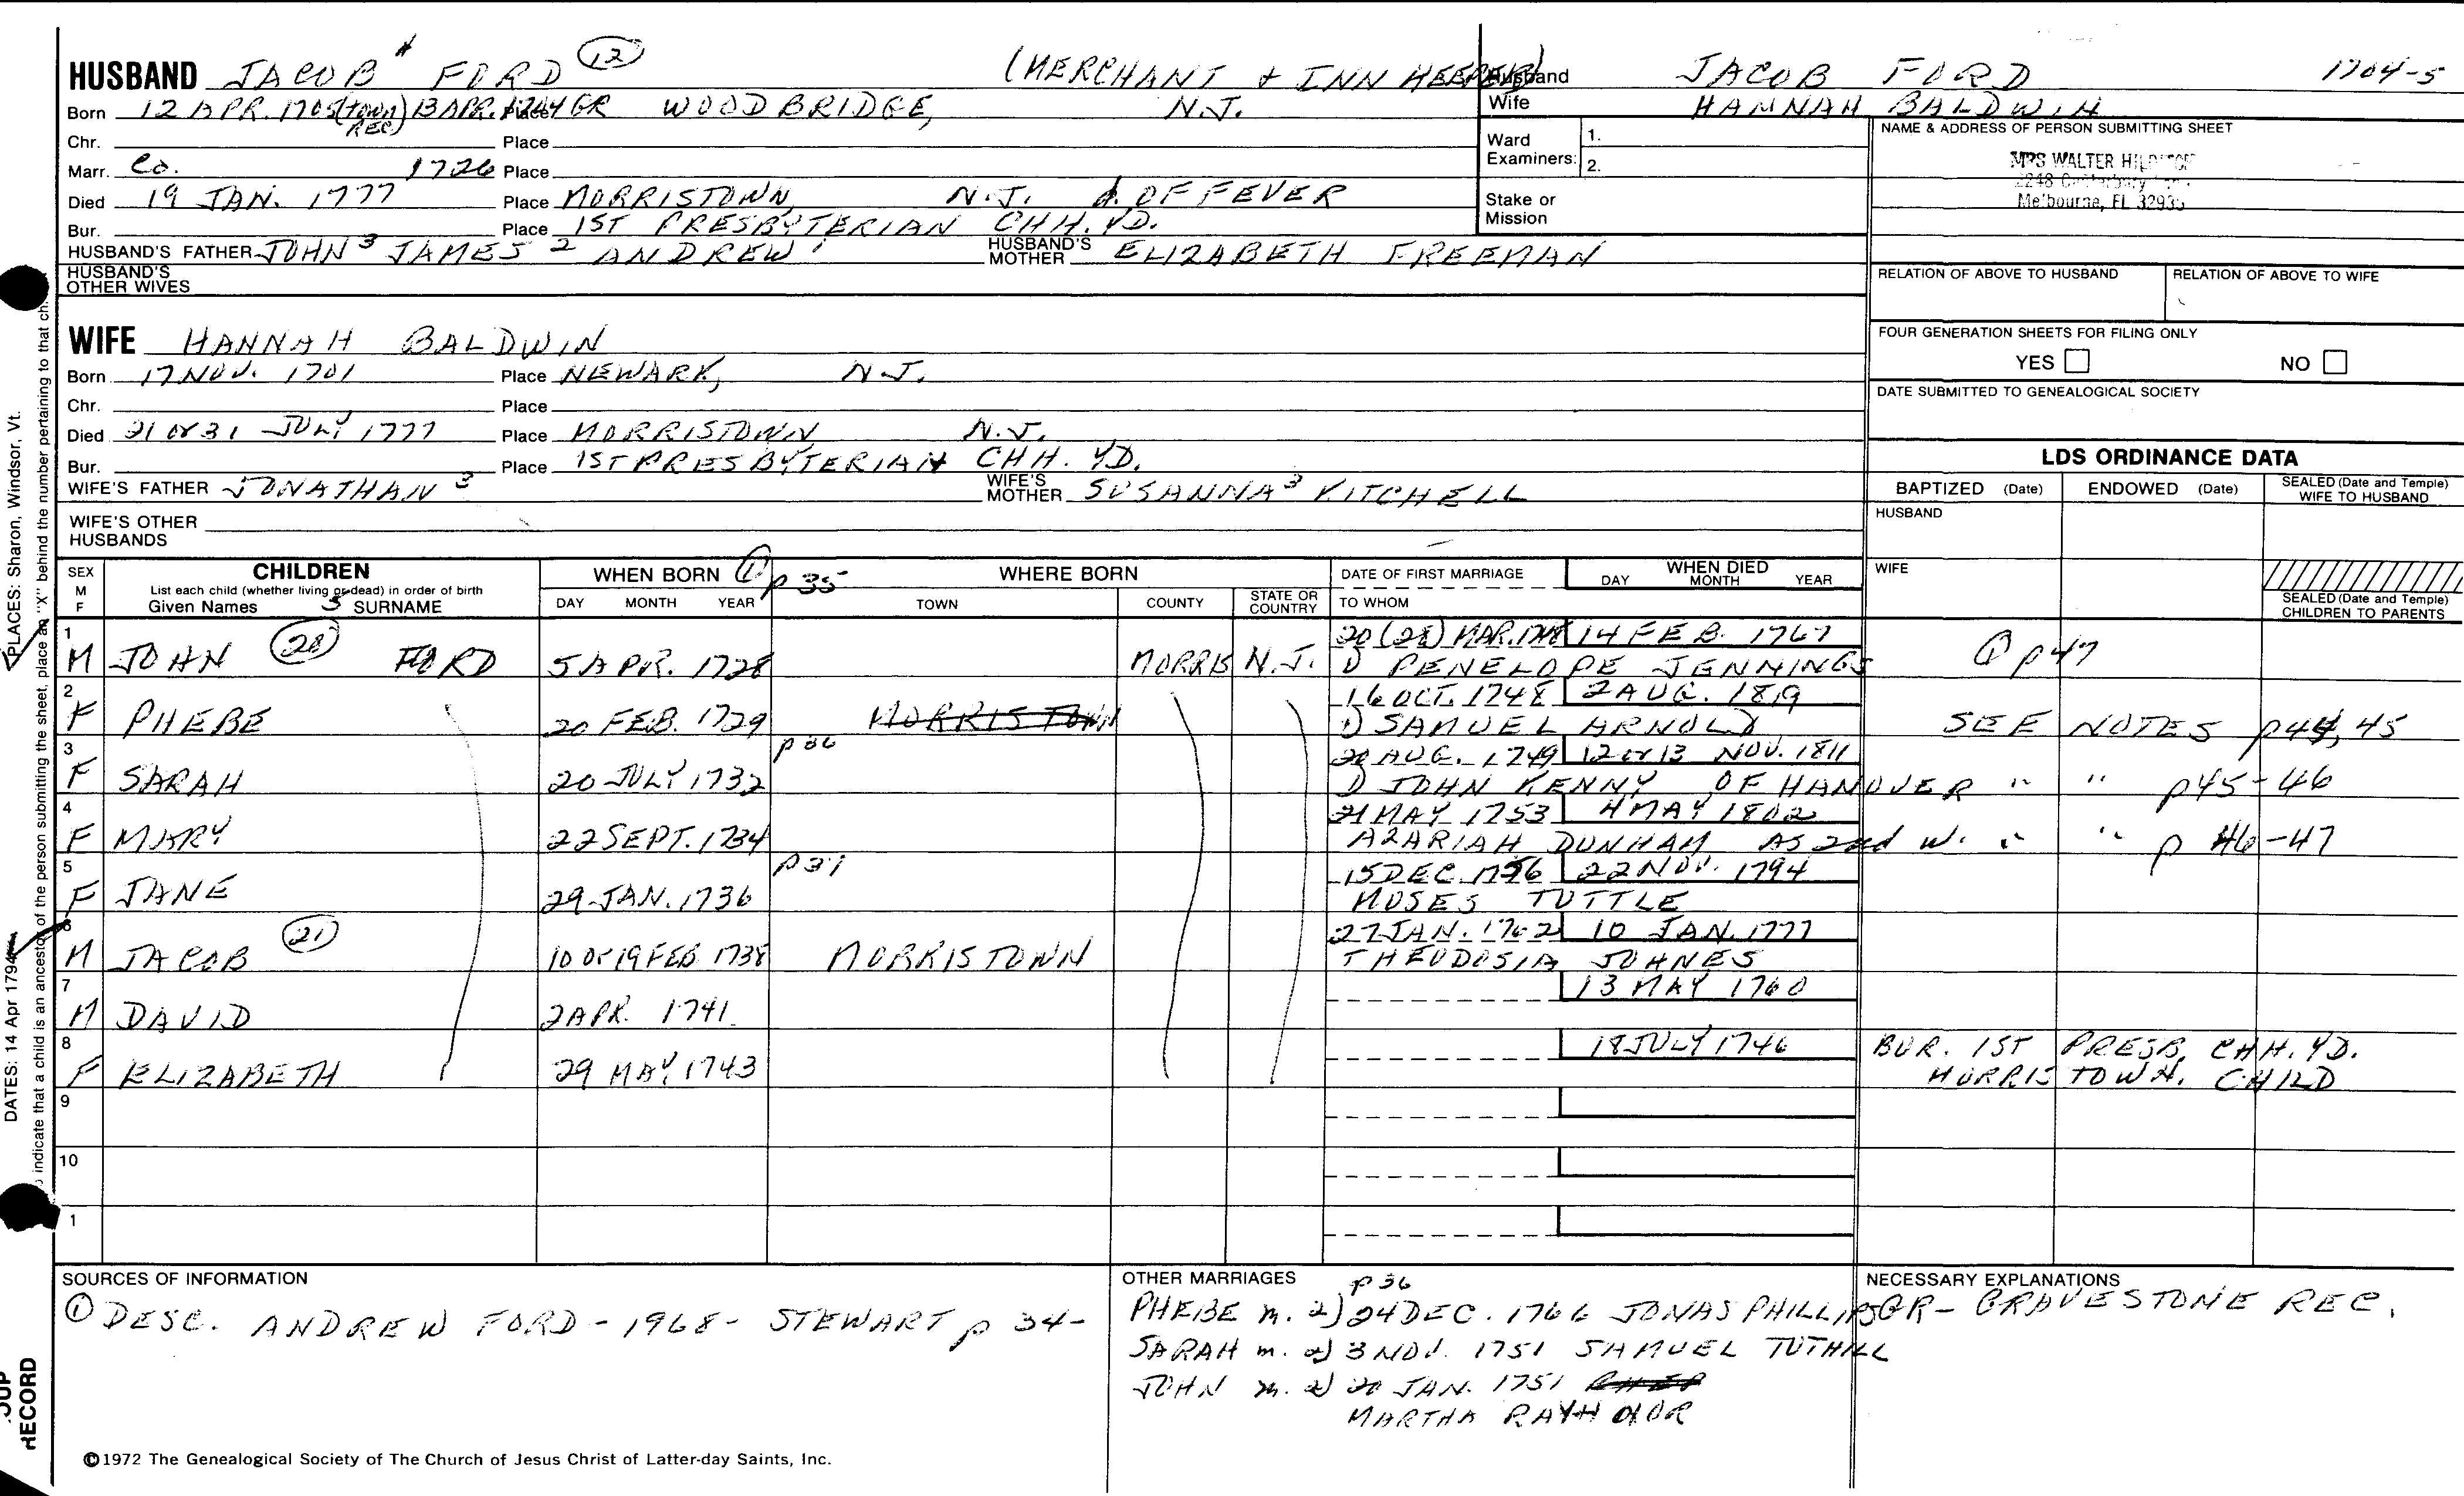 HUSBAND JACOB 4 FORD (12) (MERCHANT & INN KEEPER)
Born 12 APR. 1705 (town REC.) 13 APR. 1704 GR Place WOODBRIDGE, N.J.
Chr. Place
Marr. Ca. 1726 Place
Died 19 JAN. 1777 Place MORRISTOWN, N.J. d. OF FEVER
Bur. Place 1ST PRESBYTERIAN CHH. YD.
HUSBAND'S FATHER JOHN 3 JAMES 2 ANDREW 1 HUSBAND'S MOTHER ELIZABETH FREEMAN
HUSBAND'S OTHER WIVES
Husband JACOB FORD 1704-5
Wife HANNAH BALDWIN
Ward Examiners: 1.
2.
Stake or Mission
NAME & ADDRESS OF PERSON SUBMITTING SHEET
MRS WALTER
2248
Melbourne, FL
RELATION OF ABOVE TO HUSBAND RELATION OF ABOVE TO WIFE
FOUR GENERATION SHEETS FOR FILING ONLY
YES NO
DATE SUBMITTED TO GENEALOGICAL SOCIETY
WIFE HANNAH BALDWIN
Born 17 NOV. 1701 Place NEWARK, N.J.
Chr. Place
Died 21 or 31 JULY 1777 Place MORRISTOWN N.J.
Bur. Place 1ST PRESBYTERIAN CHH. YD.
WIFE'S FATHER JONATHAN 3 WIFE'S MOTHER SUSANNA 3 KITCHELL
WIFE'S OTHER HUSBANDS
LDS ORDINANCE DATA
BAPTIZED (Date) ENDOWED (Date) SEALED (Date and Temple) WIFE TO HUSBAND
HUSBAND
WIFE
SEALED (Date and Temple) CHILDREN TO PARENTS
SEX M F
CHILDREN
List each child (whether living or dead) in order of birth
Given Names 5 SURNAME
WHEN BORN (1) p 35
DAY MONTH YEAR
WHERE BORN
TOWN COUNTY STATE OR COUNTRY
DATE OF FIRST MARRIAGE
TO WHOM
WHEN DIED
DAY MONTH YEAR
1 20 (28) MAR. 1748 14 FEB. 1767
M JOHN (20) FORD 5 APR. 1728 MORRIS N.J. 1) PENELOPE JENNINGS (1) p 47
2 16 OCT. 1748 2 AUG. 1819
F PHEBE 20 FEB. 1729 MORRISTOWN 1) SAMUEL ARNOLD SEE NOTES p 44, 45
3 p 36 20 AUG. 1749 12 or 13 NOV. 1811
F SARAH 20 JULY 1732 1) JOHN KENNY OF HANOVER " " p 45-46
4 21 MAY 1753 4 MAY 1802
F MARY 22 SEPT. 1734 AZARIAH DUNHAM AS 2nd w. " " p 46-47
5 p 37 15 DEC. 1756 22 NOV. 1794
F JANE 29 JAN. 1736 MOSES TUTTLE
6 27 JAN. 1762 10 JAN. 1777
M JACOB (21) 10 or 19 FEB 1738 MORRISTOWN THEODOSIA JOHNES
7 13 MAY 1760
M DAVID 2 APR. 1741
8 18 JULY 1746 BUR. 1ST PRESB. CHH. YD.
F ELIZABETH 29 MAY 1743 MORRISTOWN. CHILD
9
10
1
SOURCES OF INFORMATION
(1) DESC. ANDREW FORD - 1968 - STEWART p 34-
OTHER MARRIAGES p 36
PHEBE m. 2) 24 DEC. 1766 JONAS PHILLIPS
SARAH m. 2) 3 NOV. 1751 SAMUEL TUTHILL
JOHN m. 2) 20 JAN. 1751
MARTHA RAYNOR
NECESSARY EXPLANATIONS
GR- GRAVESTONE REC.
©1972 The Genealogical Society of The Church of Jesus Christ of Latter-day Saints, Inc.
PLACES: Sharon, Windsor, Vt.
DATES: 14 Apr 1794
indicate that a child is an ancestor of the person submitting the sheet, place an "X" behind the number pertaining to that ch
RECORD